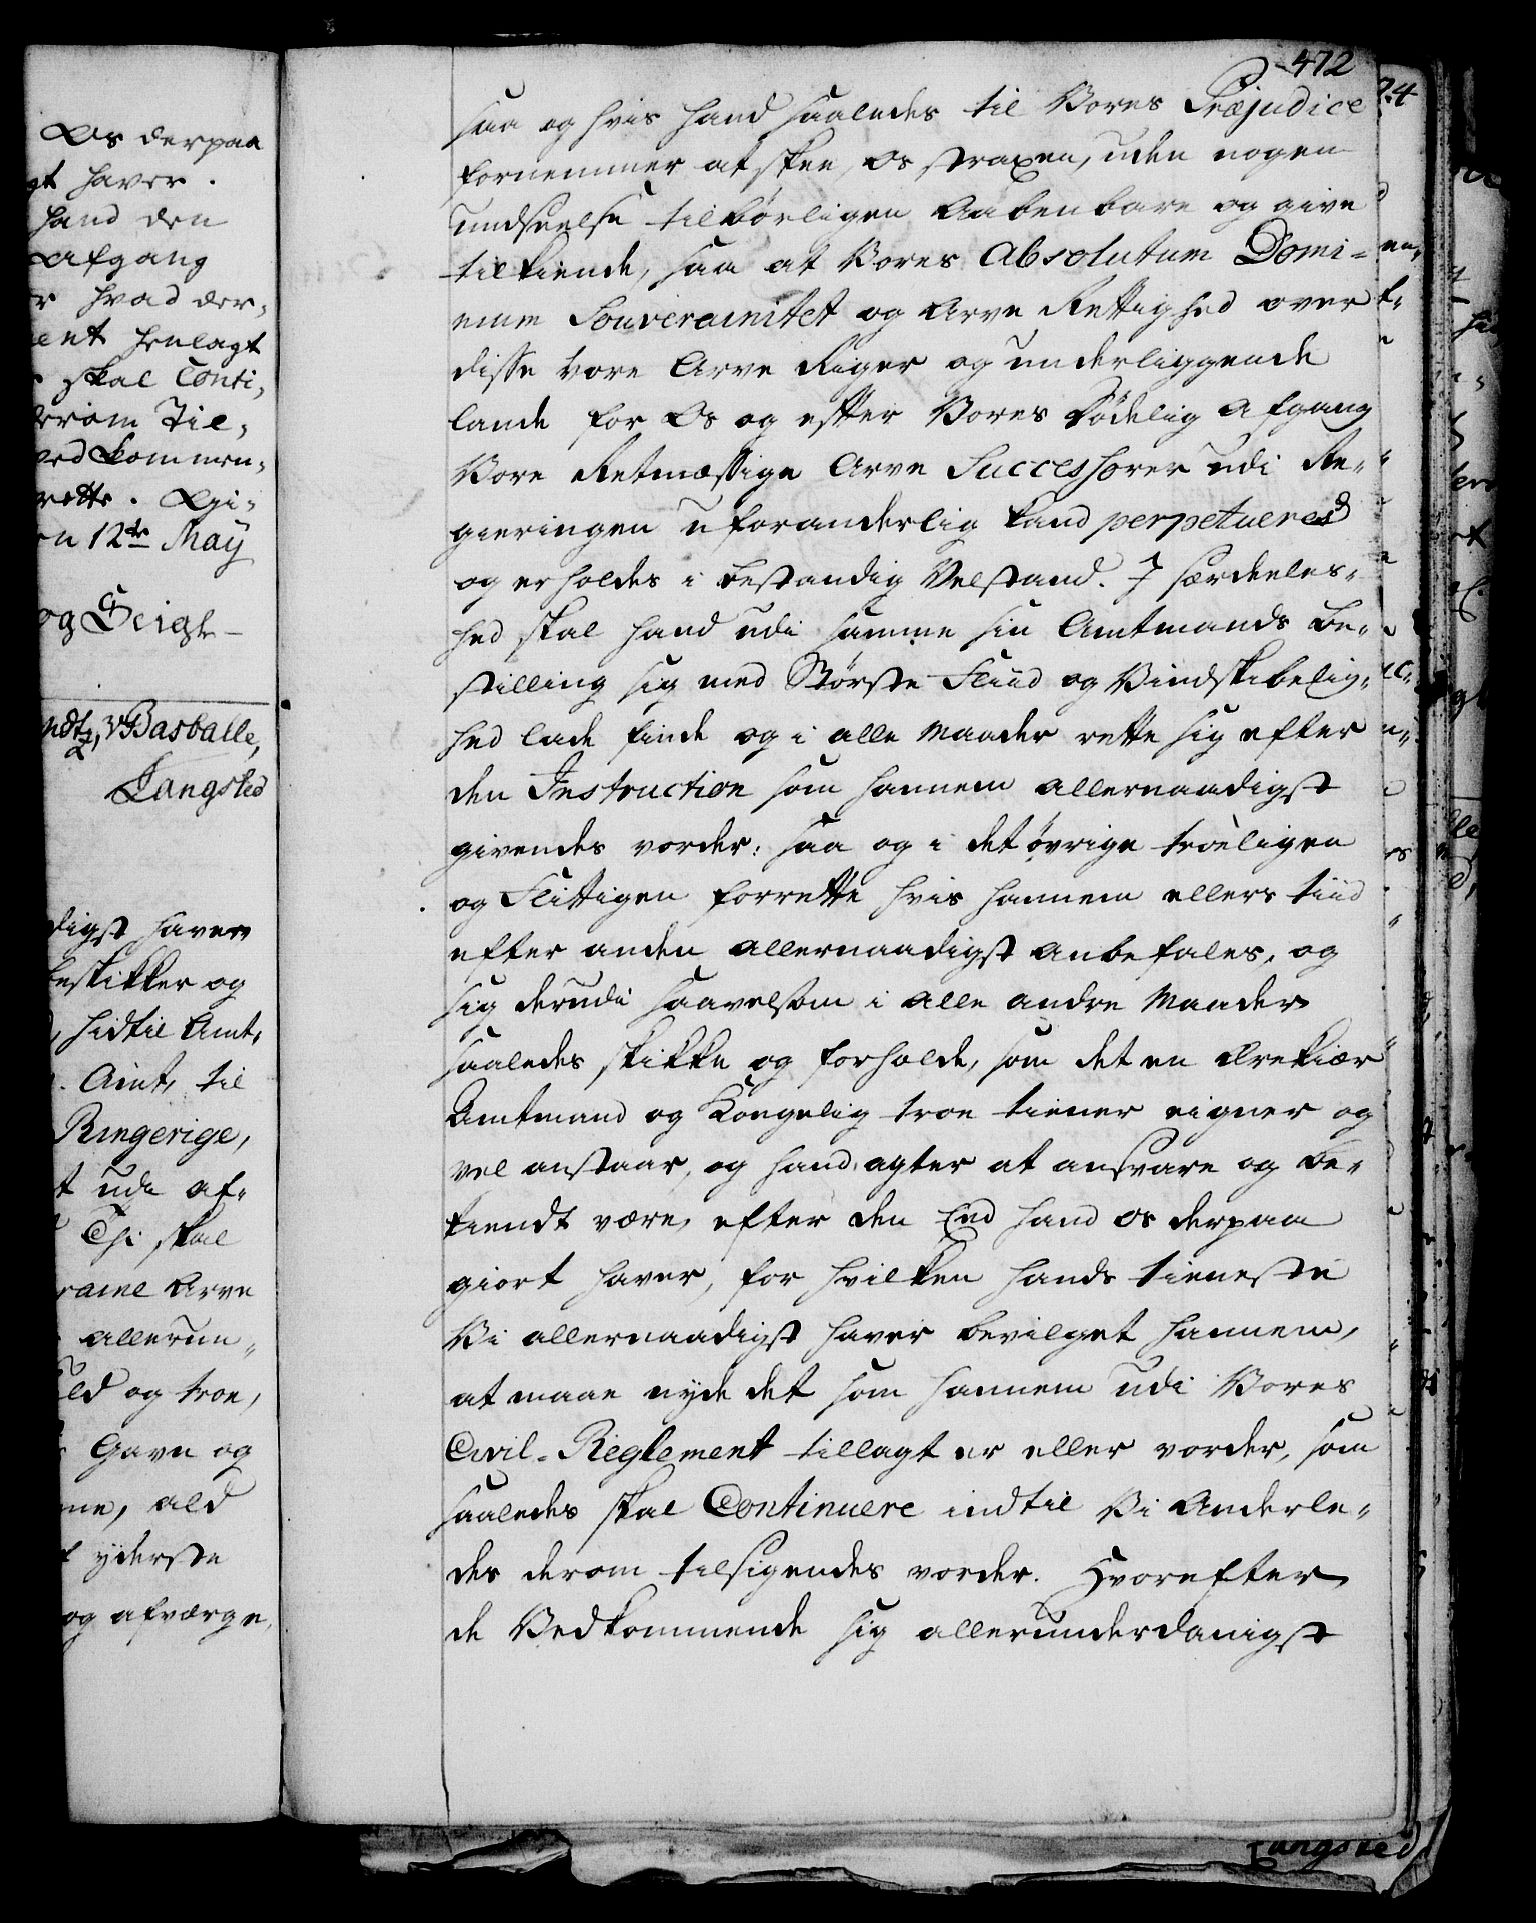 472
saa og hvis hand saaledes til Vores Præjudice
fornemmer at skee, os straxen, uden nogen
undseelse tilbørligen aabenbare og give
tilkiende, saa at Vores Absolutum Domi=
nium Souverainitet og Arve Rettighed over
disse vore Arve Riger og underliggende
lande for Os og efter Vores dødelig afgang
Vore Retmæssige Arve Successorer udi Re„
gieringen uforanderlig kand perpetueres
og erholdes i bestandig Velstand. I særdeeles„
hed skal hand udi samme sin Amtmands Be„
stilling sig med Største Fliid og Vindskibelig„
hed lade finde og i alle Maader rette sig efter
den Instruction som hannem allernaadigst
givendes vorder: saa og i det øvrige troeligen
og Flittigen forrette hvis hannem ellers tiid
efter anden allernaadigst anbefales, og
sig derudi saavelsom i alle andre Maader
saaledes skikke og forholde, som det en ærekiær
Amtmand og Kongelig troe tiener eigner og
vel anstaar, og hand agter at ansvare og be„
kiendt være, efter den Eed hand os derpaa
giort haver, for hvilken hands tieneste
Vi allernaadigst haver bevilget hannem,
at maae nyde det som hannem udi Vores
Civil-Reglement tillagt er eller vorder, som
saaledes skal Continuere indtil Vi Anderle„
des derom tilsigendes vorder. Hvorefter
de Vedkommende sig allerunderdanigst
Os derpaa
haver.
hand den
Afgang
hvad der„
henlagt
skal Conti„
Til„
Kommen„
12te May
og Seigl
Basballe,
Langsted
haver
og
hidtil Amt„
Amt, til
Ringerige,
udi af„
Thi skal
Arve
allerun„
og troe,
Gavn og
ald
yderste
og afværge,
Langsted